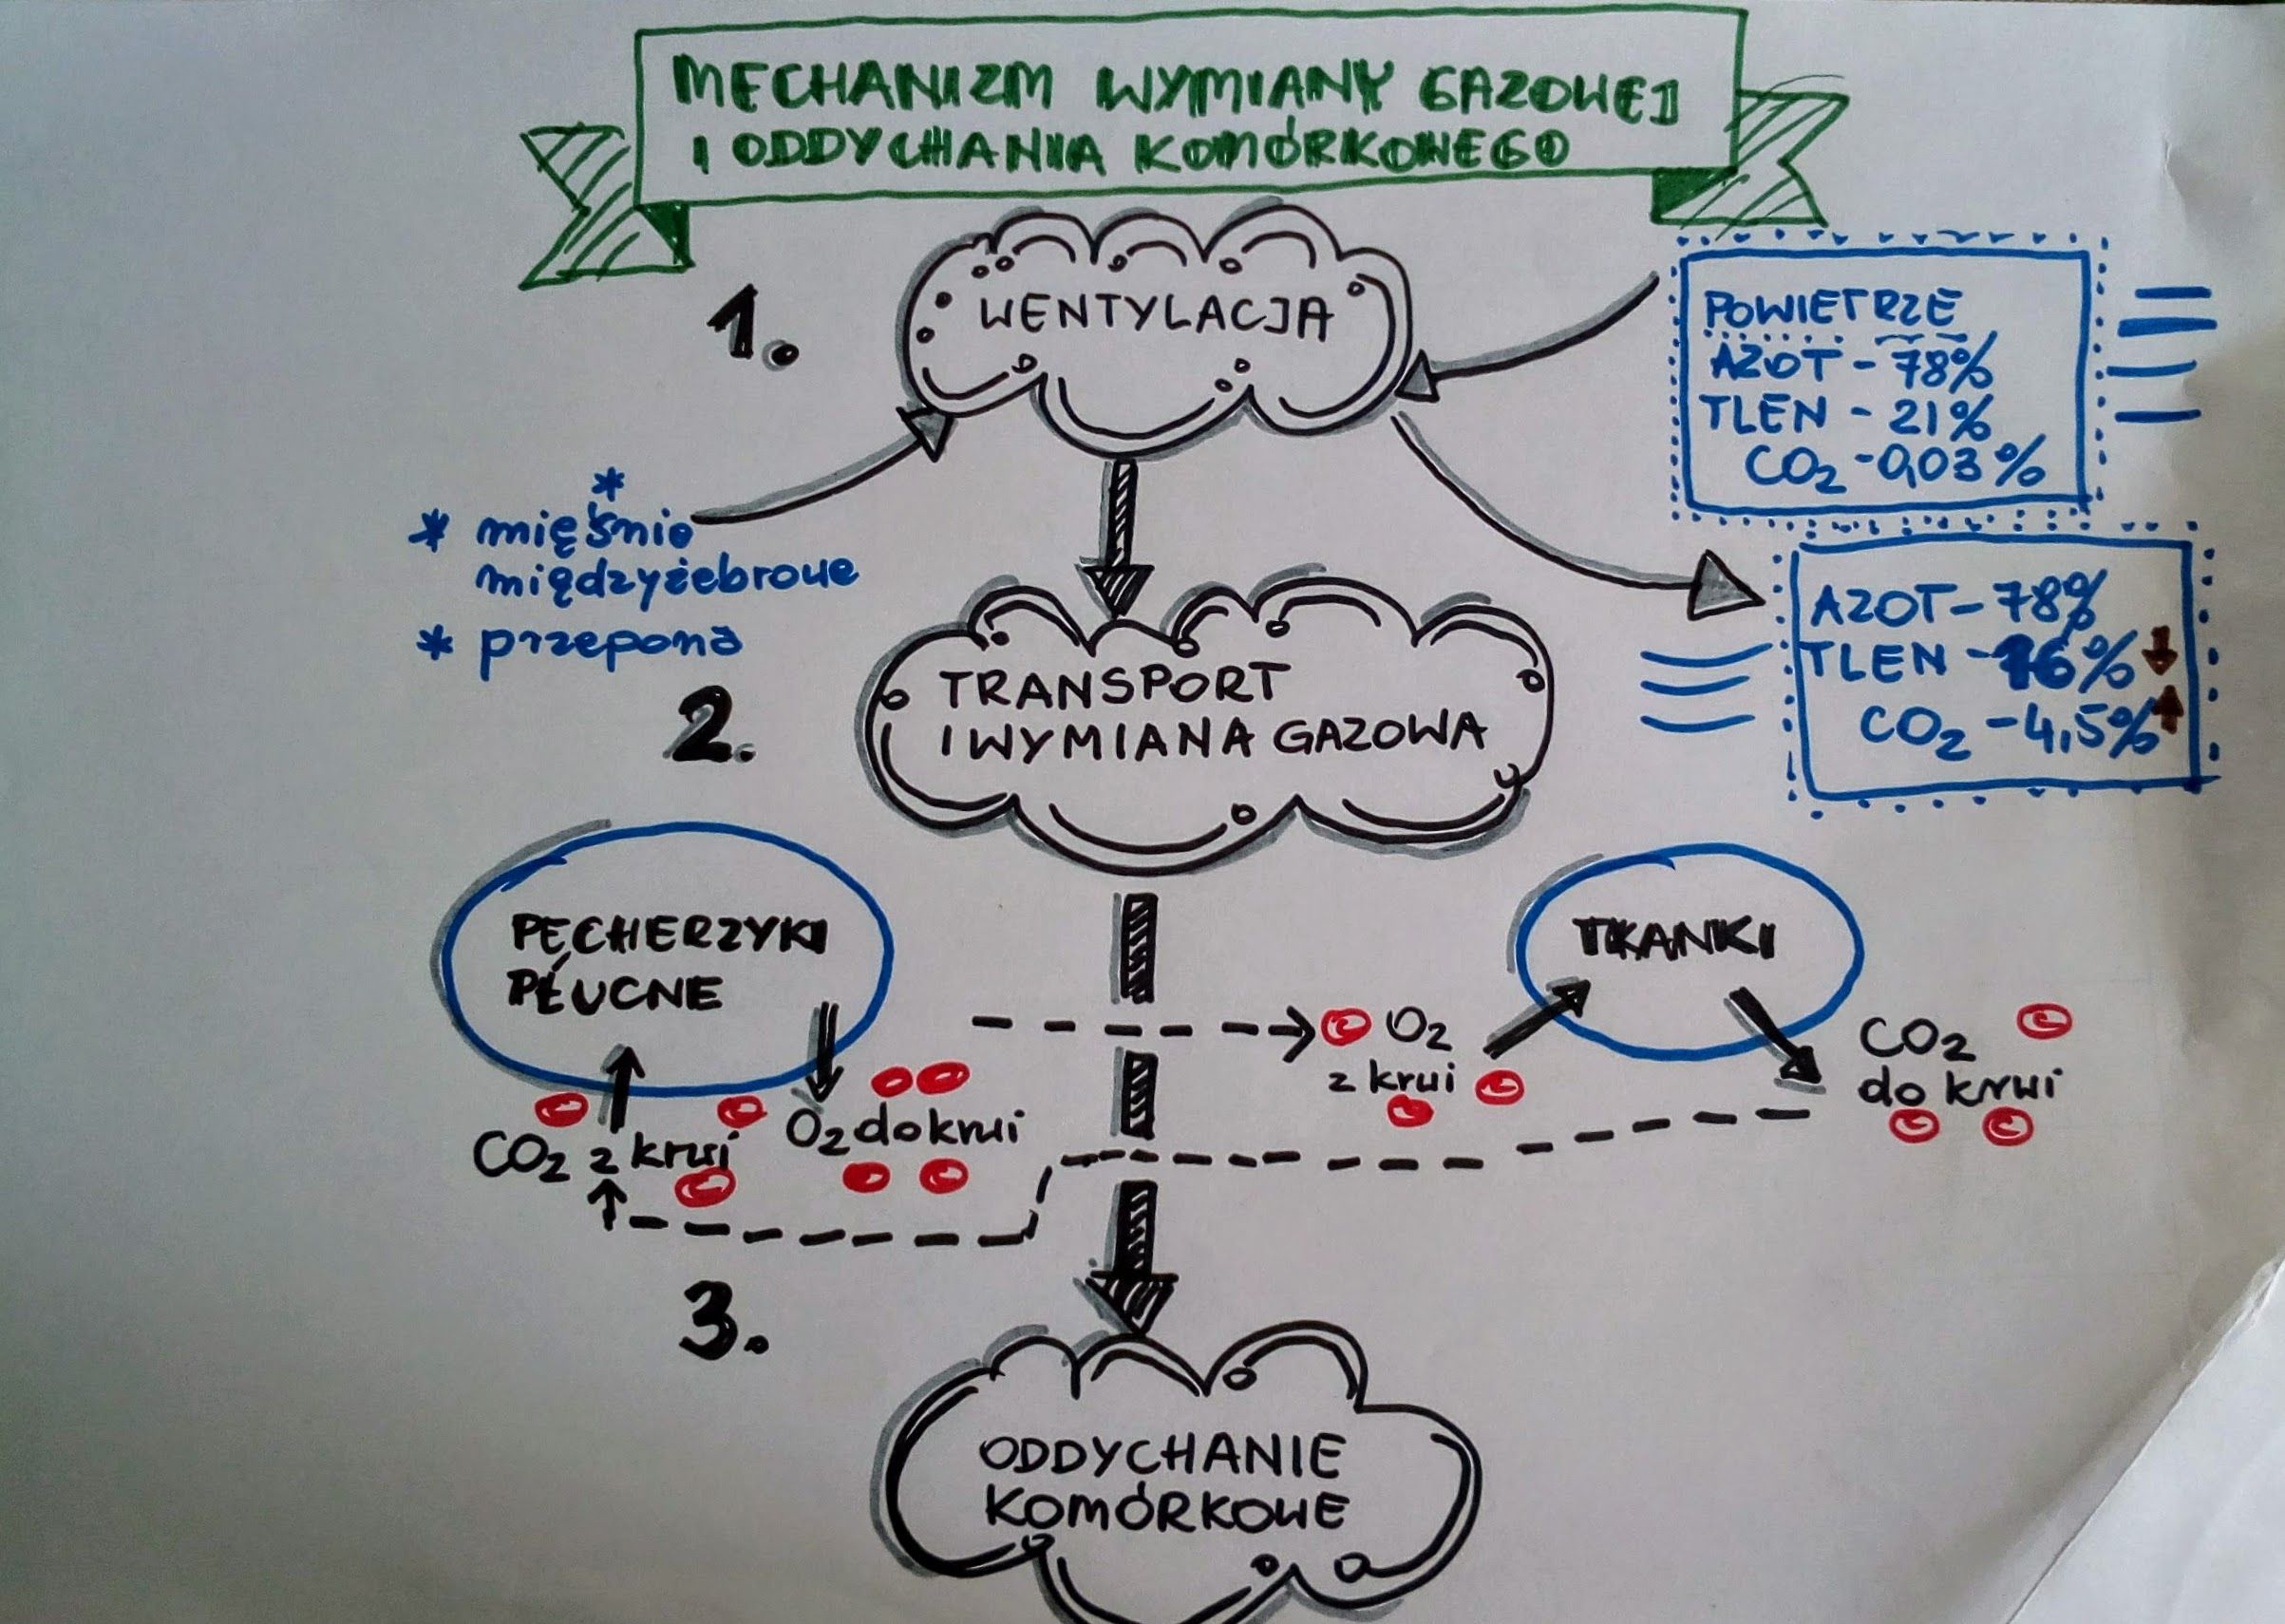 MECHANIZM WYMIANY GAZOWEJ
I ODDYCHANIA KOMÓRKOWEGO
1.
WENTYLACJA
POWIETRZE
AZOT - 78%
TLEN - 21%
CO2 - 0,03%
* mięśnie
międzyżebrowe
* przepona
AZOT - 78%
TLEN - 16% ↓
CO2 - 4,5% ↑
2.
TRANSPORT
I WYMIANA GAZOWA
PĘCHERZYKI
PŁUCNE
CO2 z krwi
O2 do krwi
O2
z krwi
TKANKI
CO2
do krwi
3.
ODDYCHANIE
KOMÓRKOWE